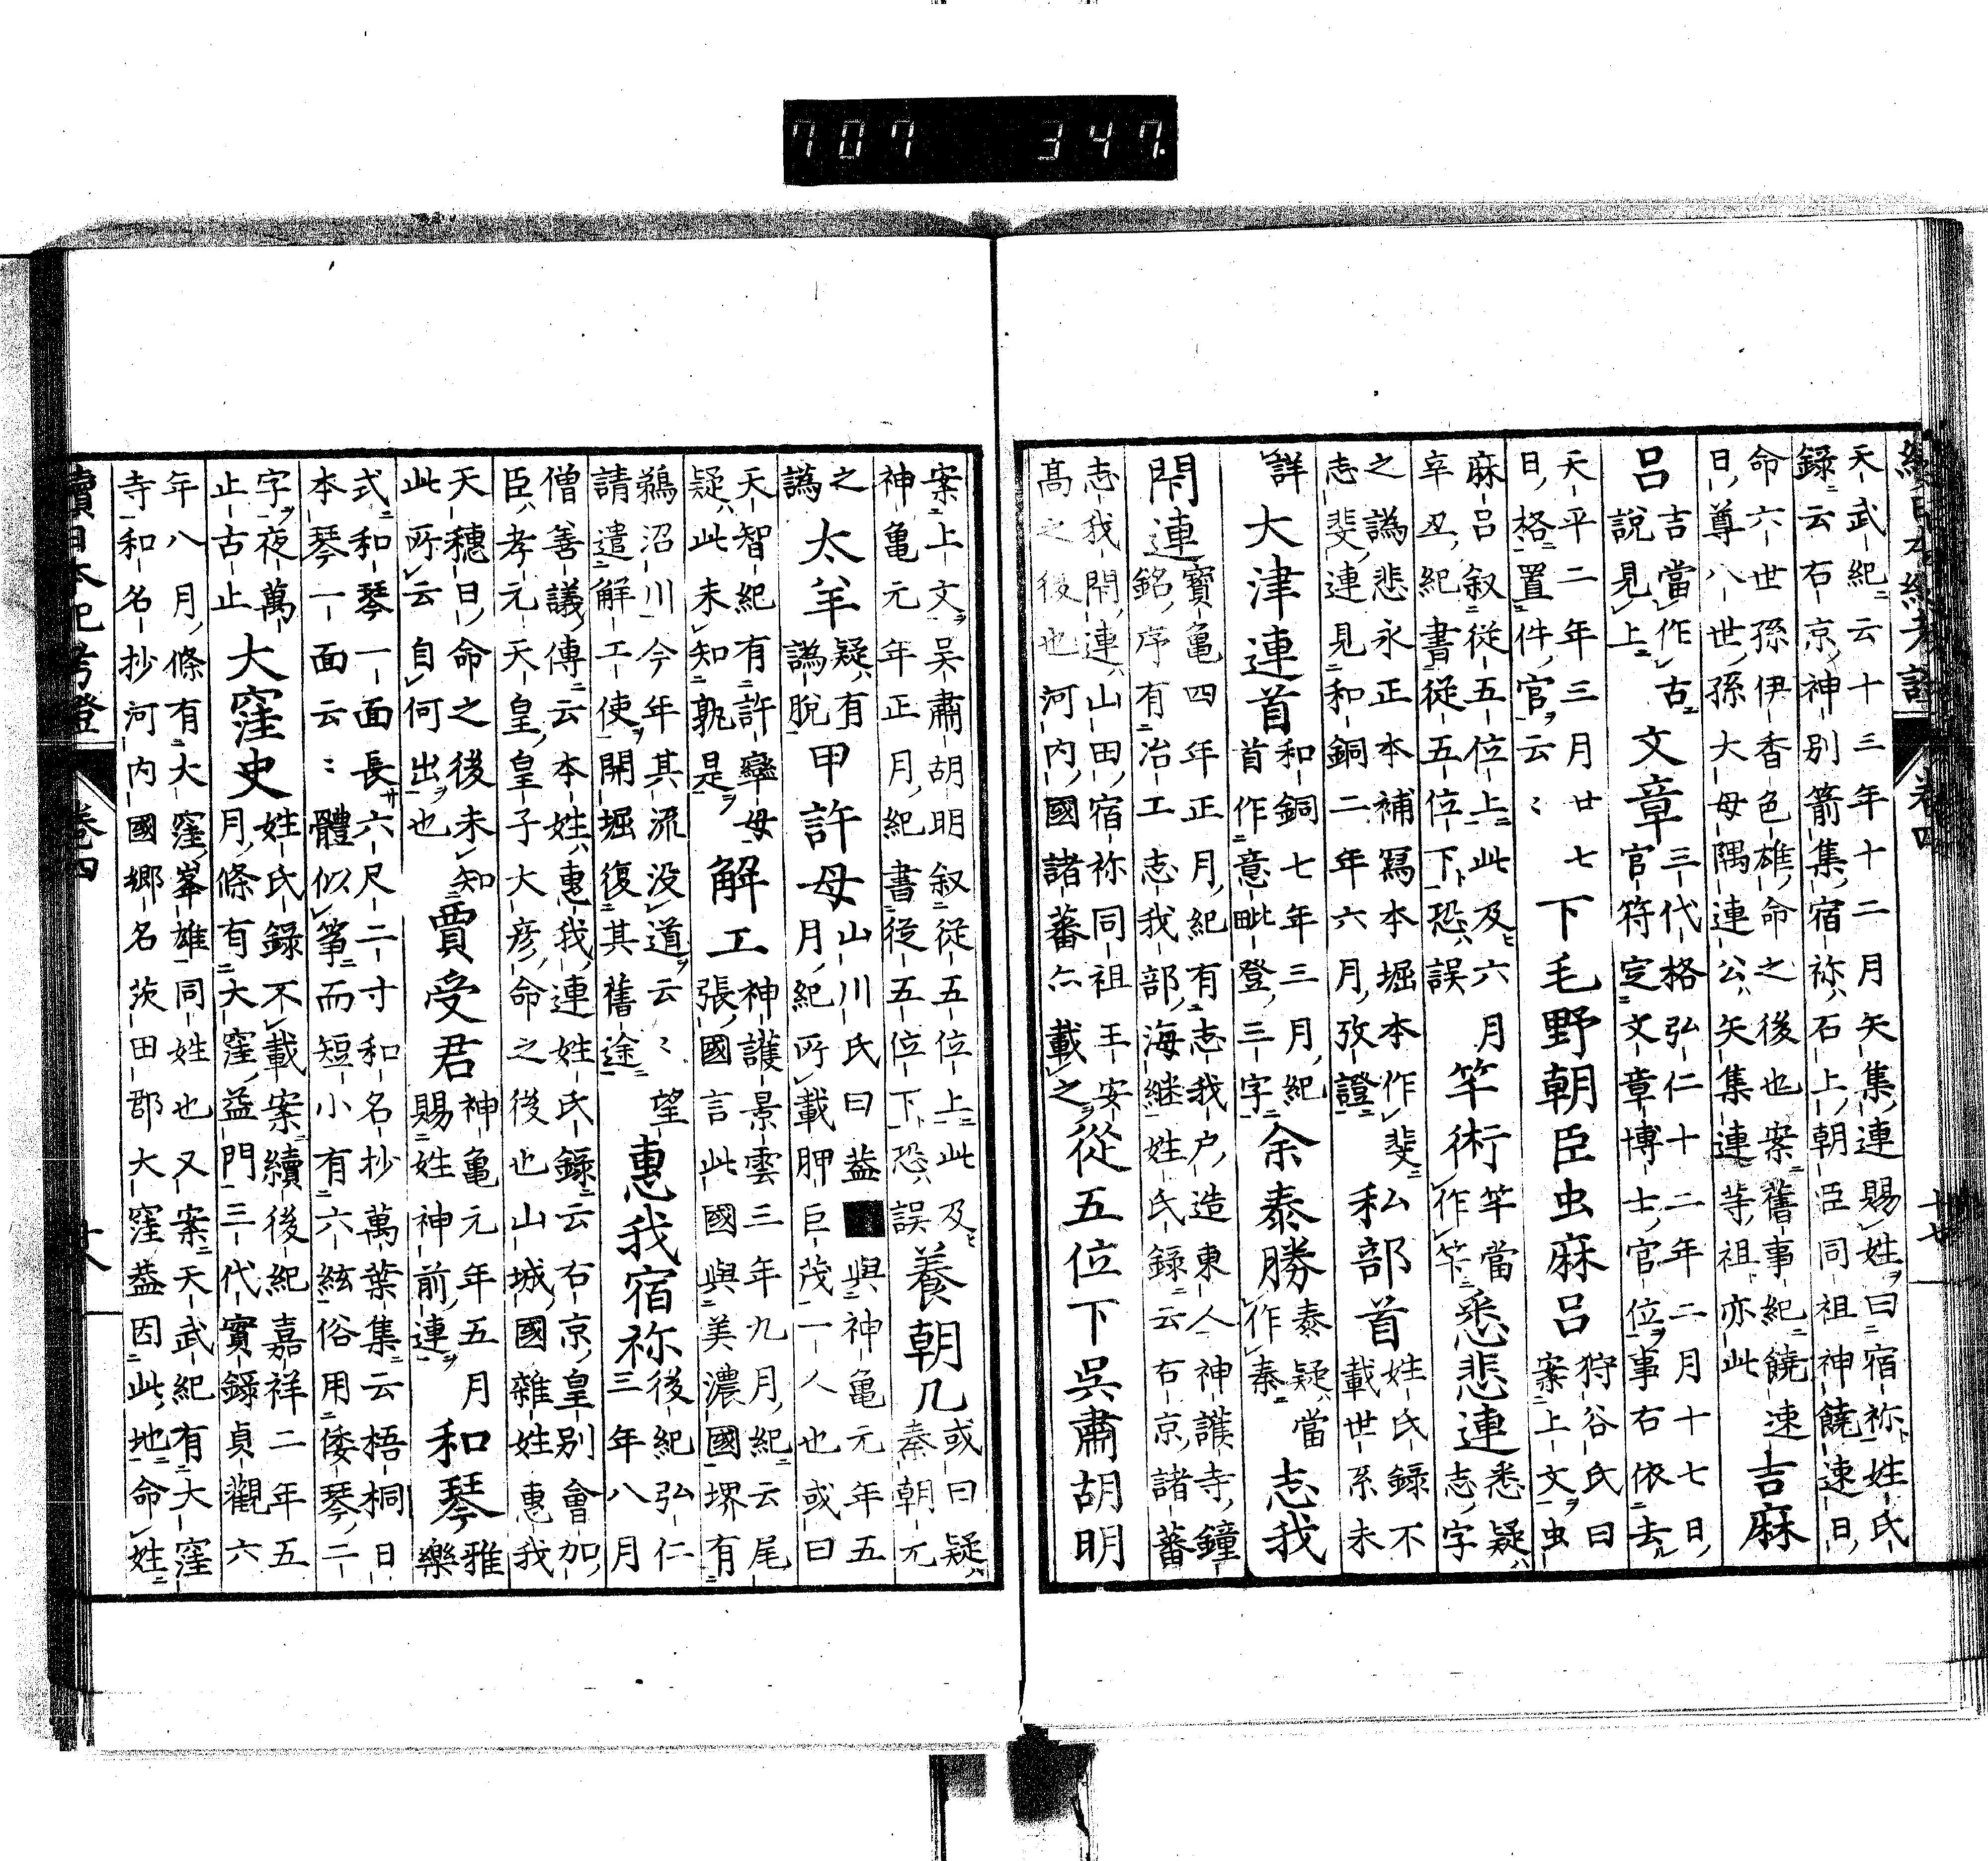 707 347.
續日本紀考證 卷四
天武紀云十三年十二月矢集連賜姓曰宿祢姓氏
錄云右京神別箭集宿祢石上朝臣同祖神饒速日
命六世孫伊香色雄命之後也案舊事紀饒速
日尊八世孫大母隅連公矢集連等祖亦此
吉麻
呂
吉當作古
說見上
文章
三代格弘仁十二年二月十七日
官符定文章博士官位事右依去
天平二年三月廿七
日格置件官云〻
下毛野朝臣虫麻呂
狩谷氏曰
案上文虫
麻呂叙從五位上此及六月
辛丑紀書從五位下恐誤
竿術
竿當
作竿
悉悲連
悉疑
志字
之譌悲永正本補寫本堀本作斐
志斐連見和銅二年六月攷證
私部首
姓氏錄不
載世系未
詳
大津連首
和銅七年三月紀
首作意毗登三字
余泰勝
泰疑當
作秦
志我
閇連
寶龜四年正月紀有志我戶造東人神護寺鐘
銘序有冶工志我部海継姓氏錄云右京諸蕃
志我閇連山田宿祢同祖王安
高之後也河內國諸蕃亦載之
從五位下吳肅胡明
案上文吳肅胡明叙從五位上此及
神龜元年正月紀書從五位下恐誤
養朝几
或曰疑
秦朝元
之
譌
太羊
疑有
譌脫
甲許母
山川氏曰蓋與神龜元年五
月紀所載胛巨茂一人也或曰
天智紀有許率母
疑此未知孰是
解工
神護景雲三年九月紀云尾
張國言此國與美濃國堺有
鵜沼川今年其流没道云〻望
請遣解工使開堀復其舊途
惠我宿祢
後紀弘仁
三年八月
僧善議傳云本姓惠我連姓氏錄云右京皇別會加
臣孝元天皇皇子大彦命之後也山城國雜姓惠我
天穗日命之後未知
此所云自何出也
賈受君
神龜元年五月
賜姓神前連
和琴
雅
樂
式和琴一面長六尺二寸和名抄萬葉集云梧桐日
本琴一面云〻體似箏而短小有六絃俗用倭琴二
字夜萬
止古止
大窪史
姓氏錄不載案續後紀嘉祥二年五
月條有大窪益門三代實錄貞觀六
年八月條有大窪峯雄同姓也又案天武紀有大窪
寺和名抄河內國鄉名茨田郡大窪蓋因此地命姓
續日本紀考證 卷四